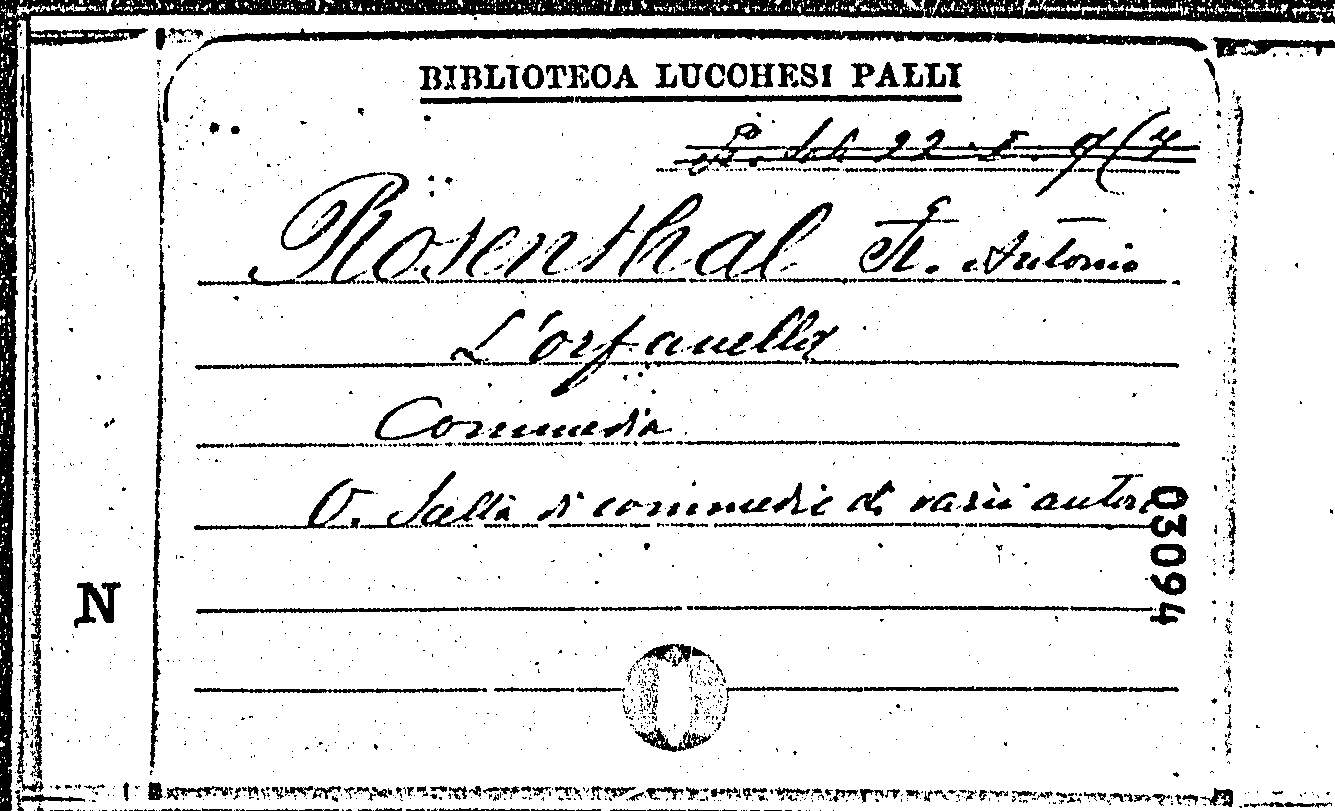 BIBLIOTECA LUCCHESI PALLI
22. I. 7(7
Rosenthal Fr. Antonio
L'orfanella
Commedia
V. Scelta di commedie di varii autori
03094
N